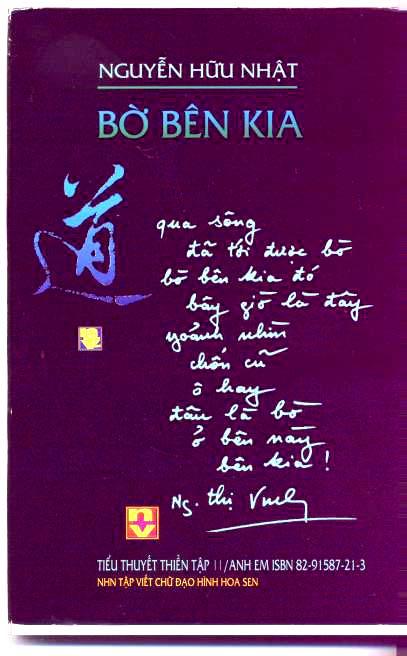 NGUYỄN HỮU NHẬT
BỜ BÊN KIA
道
qua sông
đã tới được bờ
bờ bên kia đó
bây giờ là đây
ngoảnh nhìn
chốn cũ
ô hay
đâu là bờ
ở bên này
bên kia !
Ng. thị Vinh
TIỂU THUYẾT THIỀN TẬP II/ANH EM ISBN 82-91587-21-3
NHN TẬP VIẾT CHỮ ĐẠO HÌNH HOA SEN